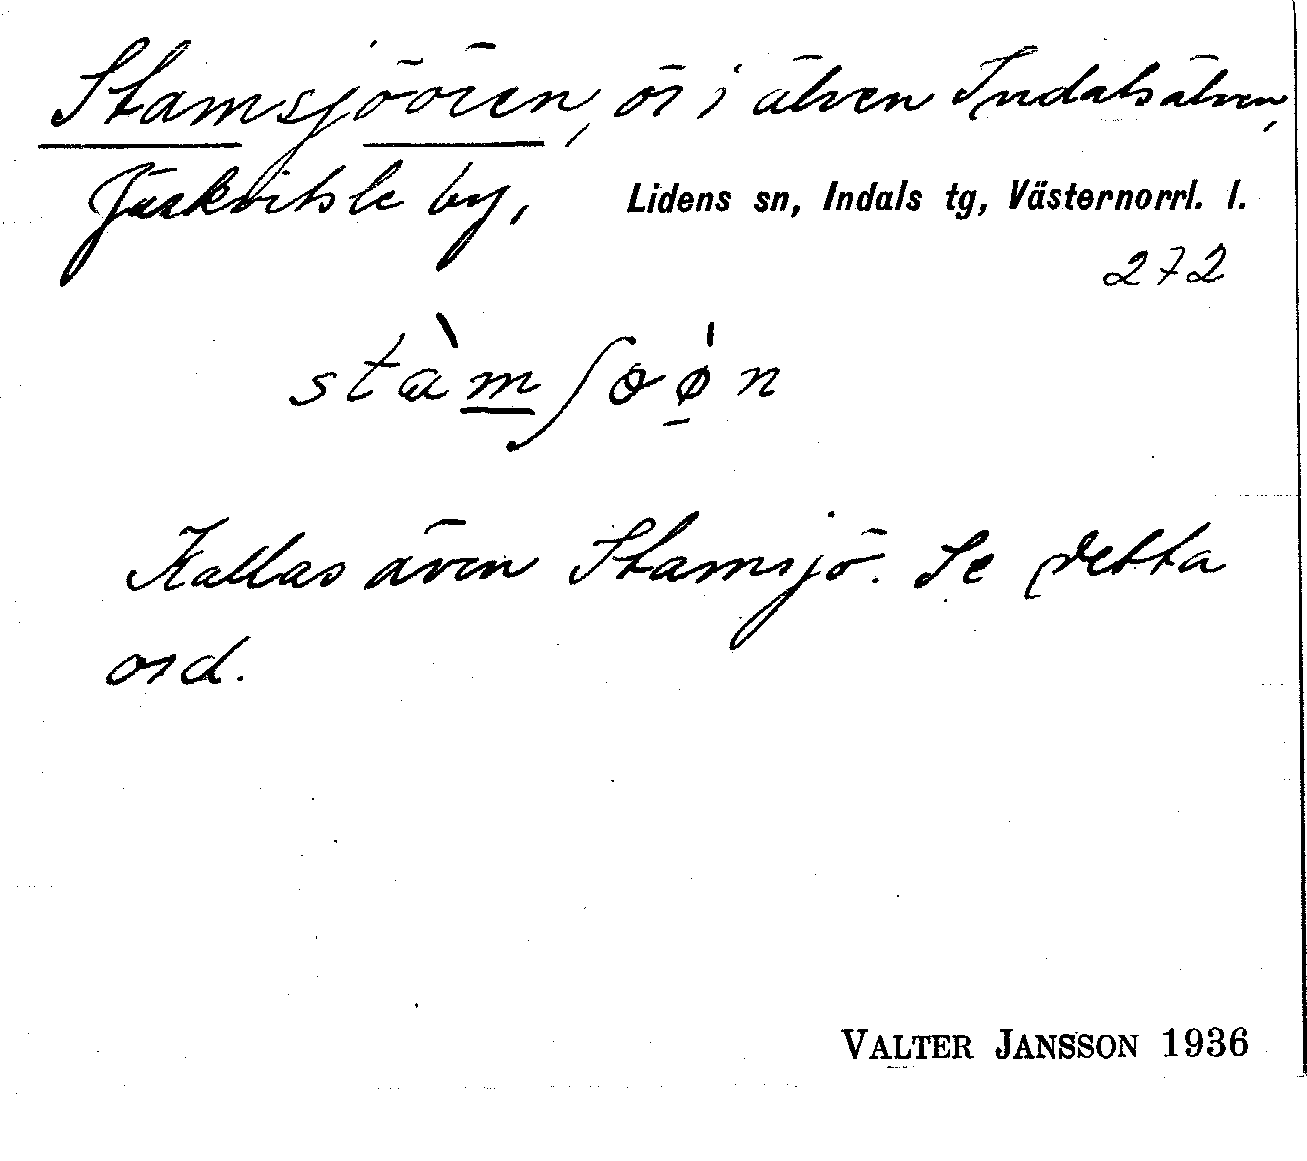 Stamsjöören, ör i älven Indalsälven,
Järkvitsle by, Lidens sn, Indals tg, Västernorrl. l.
272
stàmʃøǿn
Kallas även Stamsjö. Se detta
ord.
VALTER JANSSON 1936